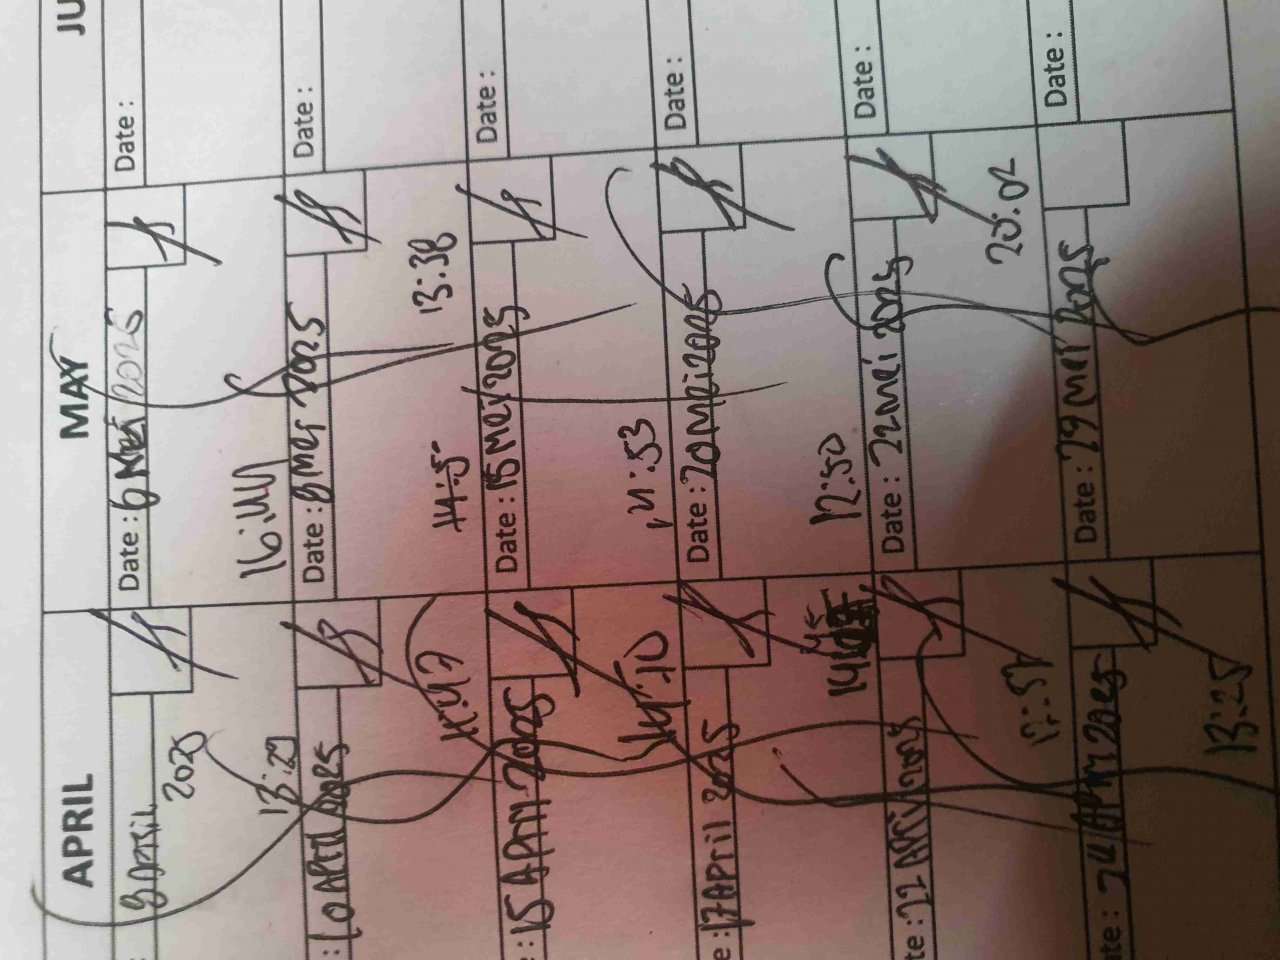 APRIL
8 April
2025
13:29
: 10 April 2025
: 15 April 2025
14:10
e : 17 April 2025
14:45
te : 22 April 2025
12:57
ate : 24 April 2025
13:25
MAY
Date : 6 Mei 2025
Date : 8 Mei 2025
13:38
Date : 15 Mei 2025
Date : 20 Mei 2025
12:50
Date : 22 Mei 2025
20:02
Date : 29 Mei 2025
JU
Date :
Date :
Date :
Date :
Date :
Date :